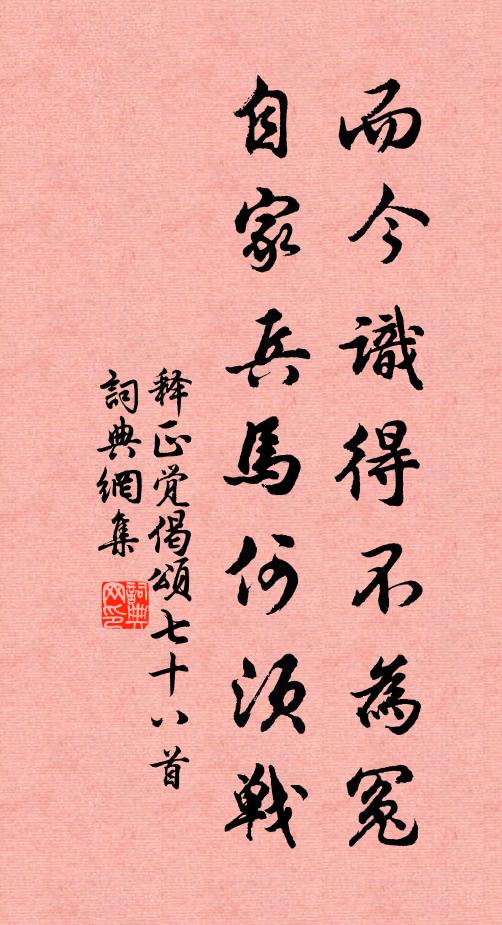 而今識得不為冤
自家兵馬何須戰
释正觉偈頌七十八首
詞典網集
詞典
网印